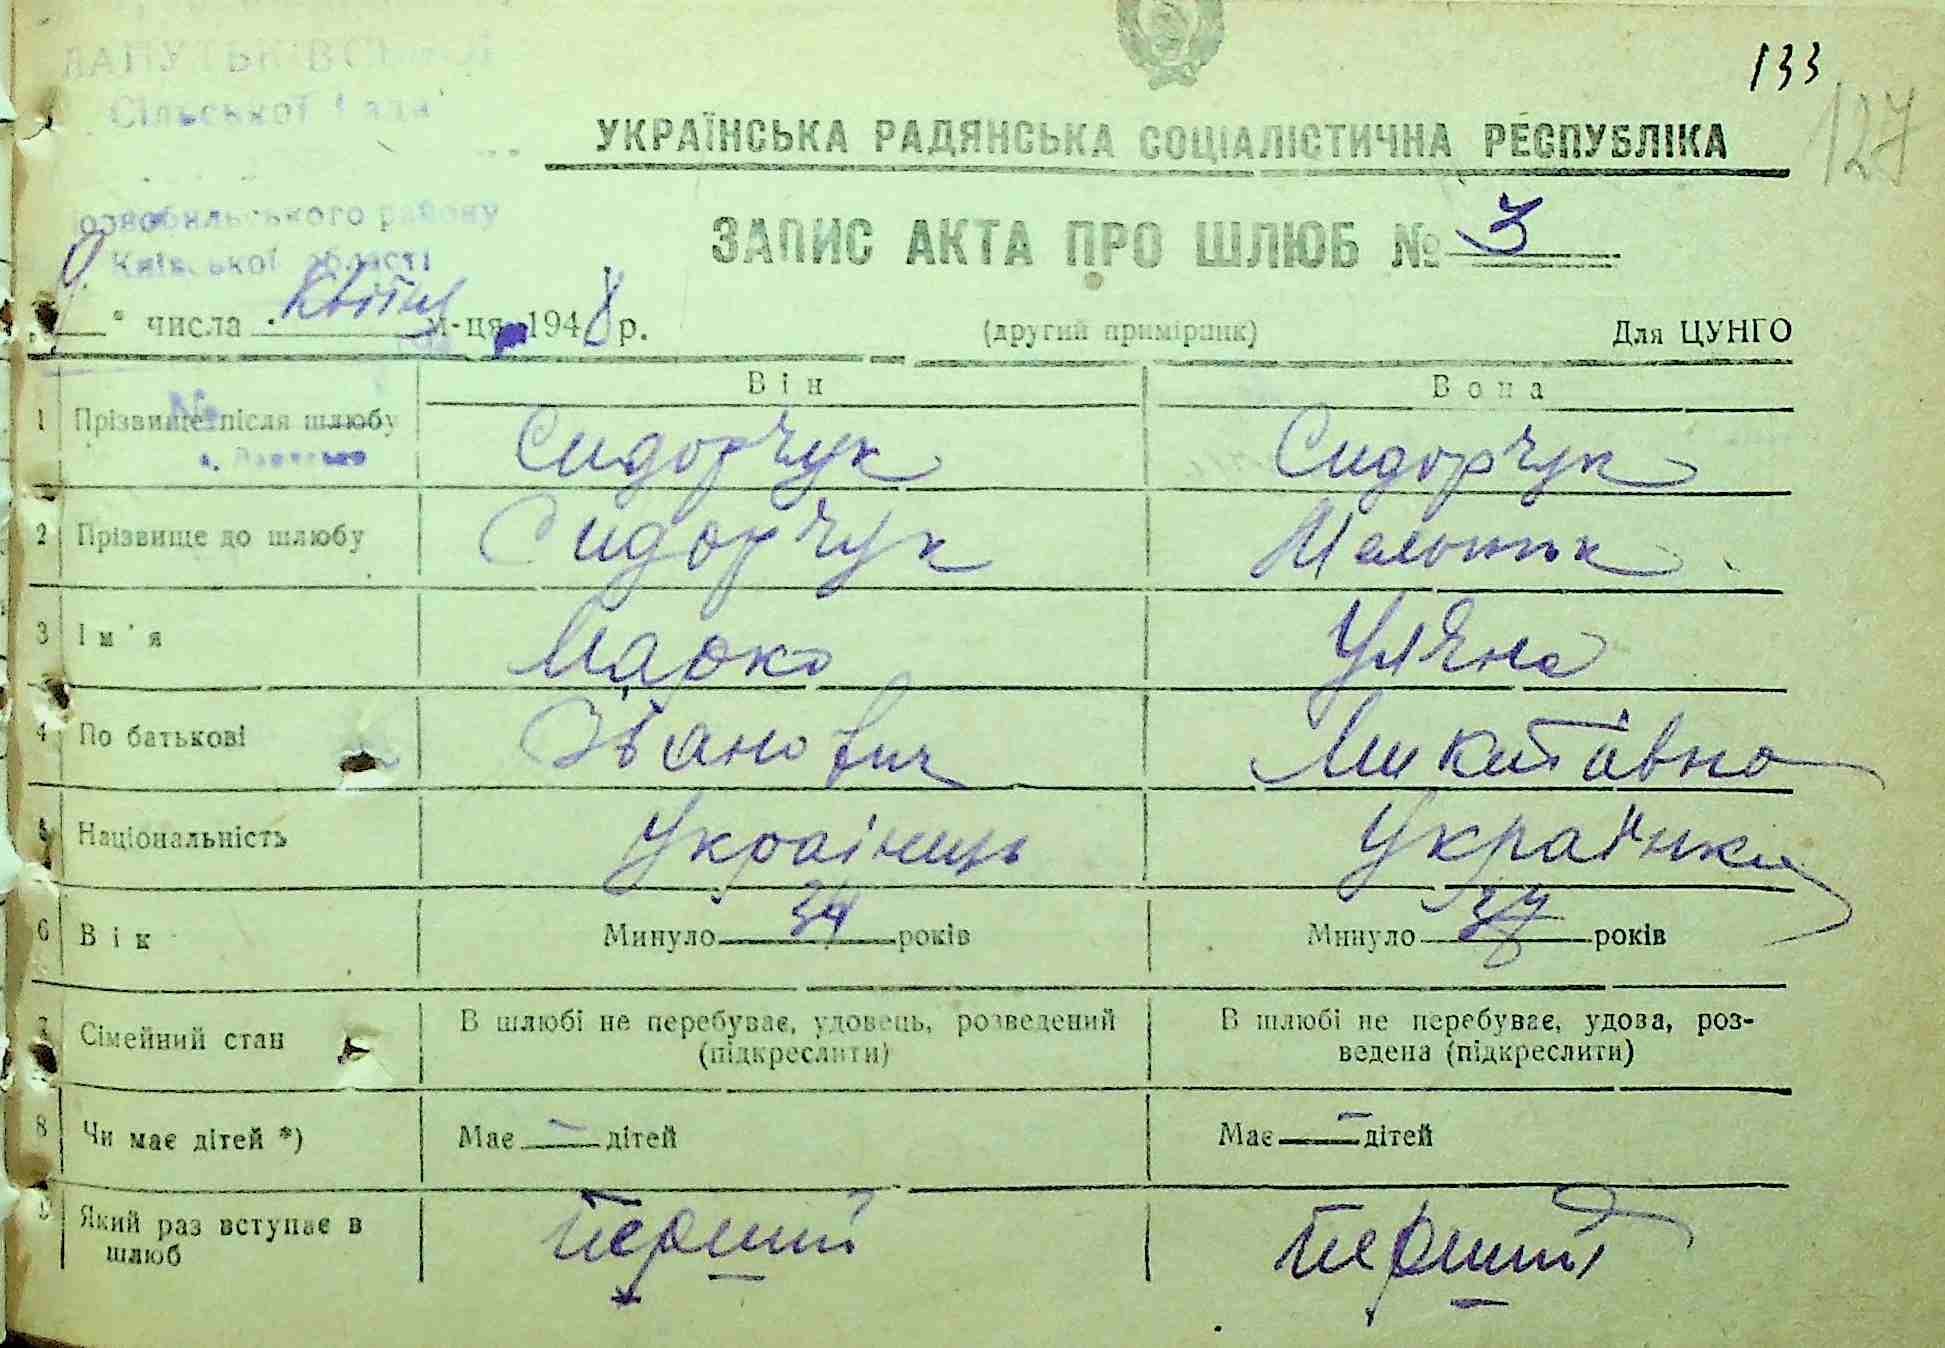 133
127
Сільської Ради
УКРАЇНСЬКА РАДЯНСЬКА СОЦІАЛІСТИЧНА РЕСПУБЛІКА
ЗАПИС АКТА ПРО ШЛЮБ № 3
району
Київської області
„9“ числа Квітня м-ця 1948 р. (другий примірник) Для ЦУНГО
Він Вона
1 Прізвище після шлюбу Сидорчук Сидорчук
2 Прізвище до шлюбу Сидорчук
3 Ім'я Марко Уляна
4 По батькові Іванович Микитівна
5 Національність Українець Українка
6 Вік Минуло 34 років Минуло років
7 Сімейний стан В шлюбі не перебуває, удовець, розведений (підкреслити) В шлюбі не перебуває, удова, роз-
ведена (підкреслити)
8 Чи має дітей *) Має — дітей Має — дітей
9 Який раз вступає в шлюб Перший Перший